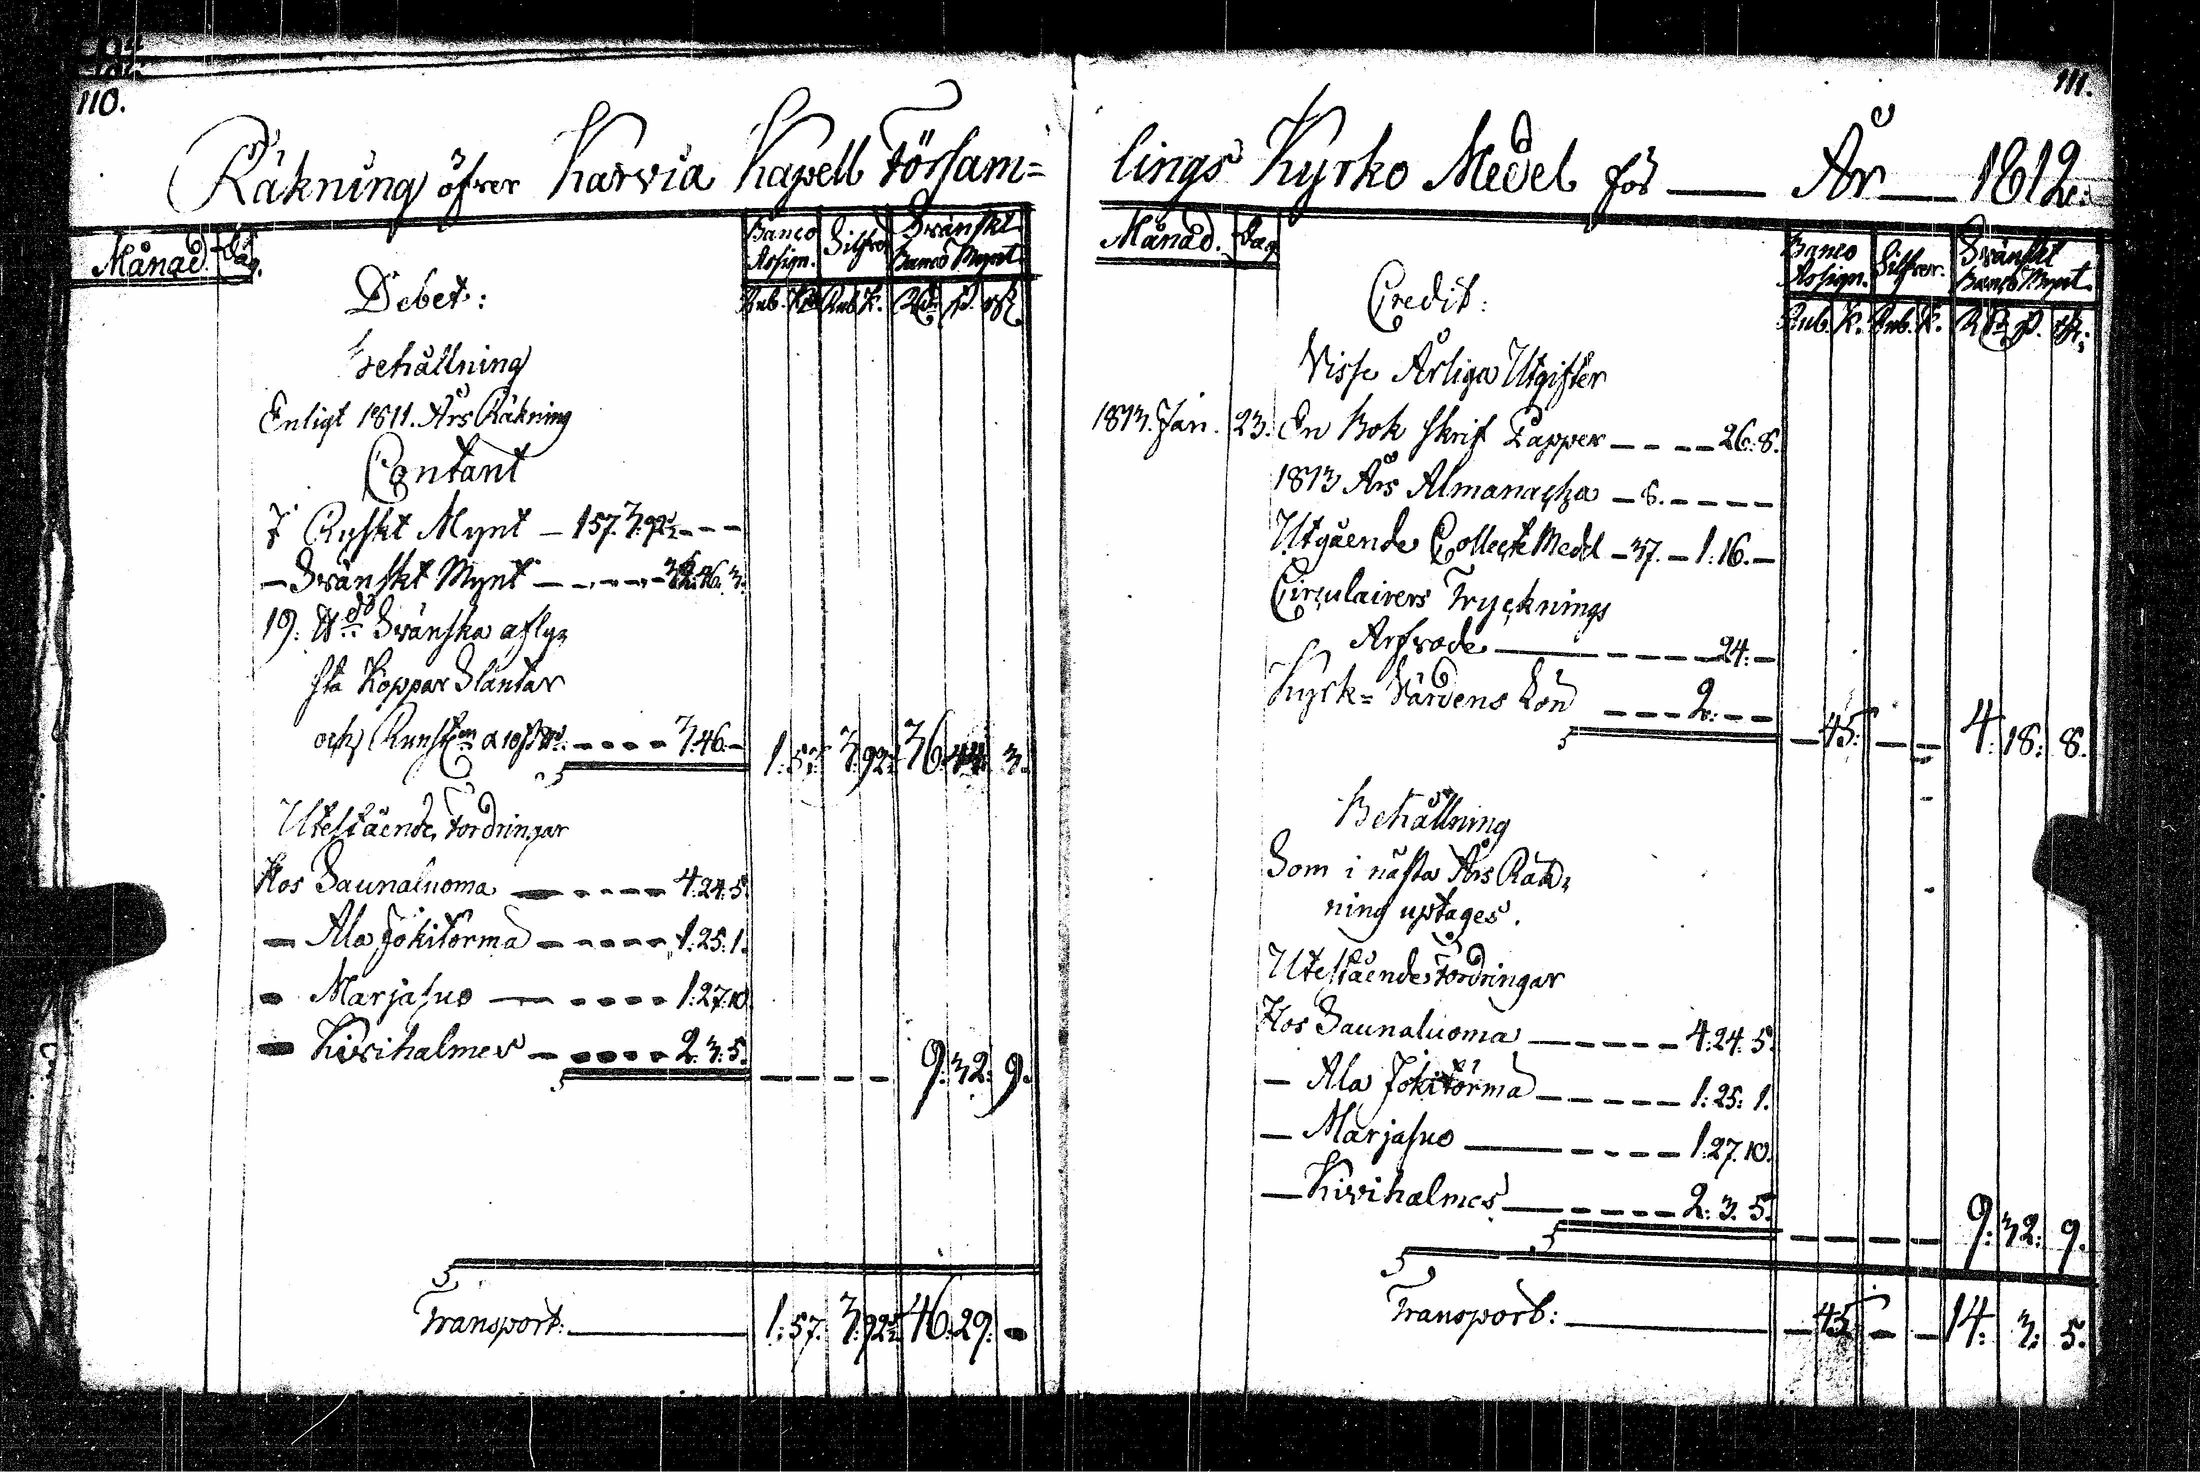 110.
Räkning öfver Karvia Kapell Försam=
Månad. Dag.
Banco Assign. Silfver Svänskt Banco Mynt.
Rub. K. Rub. K. Rd. ß. rst.
Debet:
Behållning
Enligt 1811. Års Räkning
Contant
I Ryskt Mynt — 157. 3:92½ - - -
— Svänskt Mynt — - - - - 46. 3.
19: ℔ Svänska aflyz
sta Koppar Slantar
och Runst. a 10 ß - - - - 3.46.—
1:57. 3.92½ 36 3.
Utestående Fordringar
Hos Saunaluoma — - - - - 4.24.5.
— Ala Jokitörma - - - - - 1.25.1.
— Marjasuo — - - - - 1.27.10
— Kivihalmes — - - - - 2.3.5.
- - - - 9:32:9.
Transport: — 1:57. 3:92½ 46:29:-
111.
lings Kyrko Medel för — År — 1812:
Månad. Dag
Banco Assign. Silfver. Svänskt Banco Mynt.
Rub. K. Rub. K. R ß. rst.
Credit:
Visse Årliga Utgifter
1813. Jan. 23. En Bok Skrif Papper - - - - 26:8.
1813 Års Almanacka — 8. - - - -
Utgående Collect Medel — 37. — 1:16.—
Circulairers Trycknings
Arfvode — - - - - 24:—
Kyrk=Värdens Lön - - - 2:- -
— 45: — — 4:18:8.
Behållning
Som i nästa Års Räk=
ning uptages.
Utestående Fordringar
Hos Saunaluoma — - - - - 4:24.5.
— Ala Jokitörma — - - - - 1:25:1.
— Marjasuo — - - - - 1.27.10.
— Kivihalmes — - - - - 2:3.5.
- - - - 9:32:9.
Transport: — 45 — — 14:3:5.